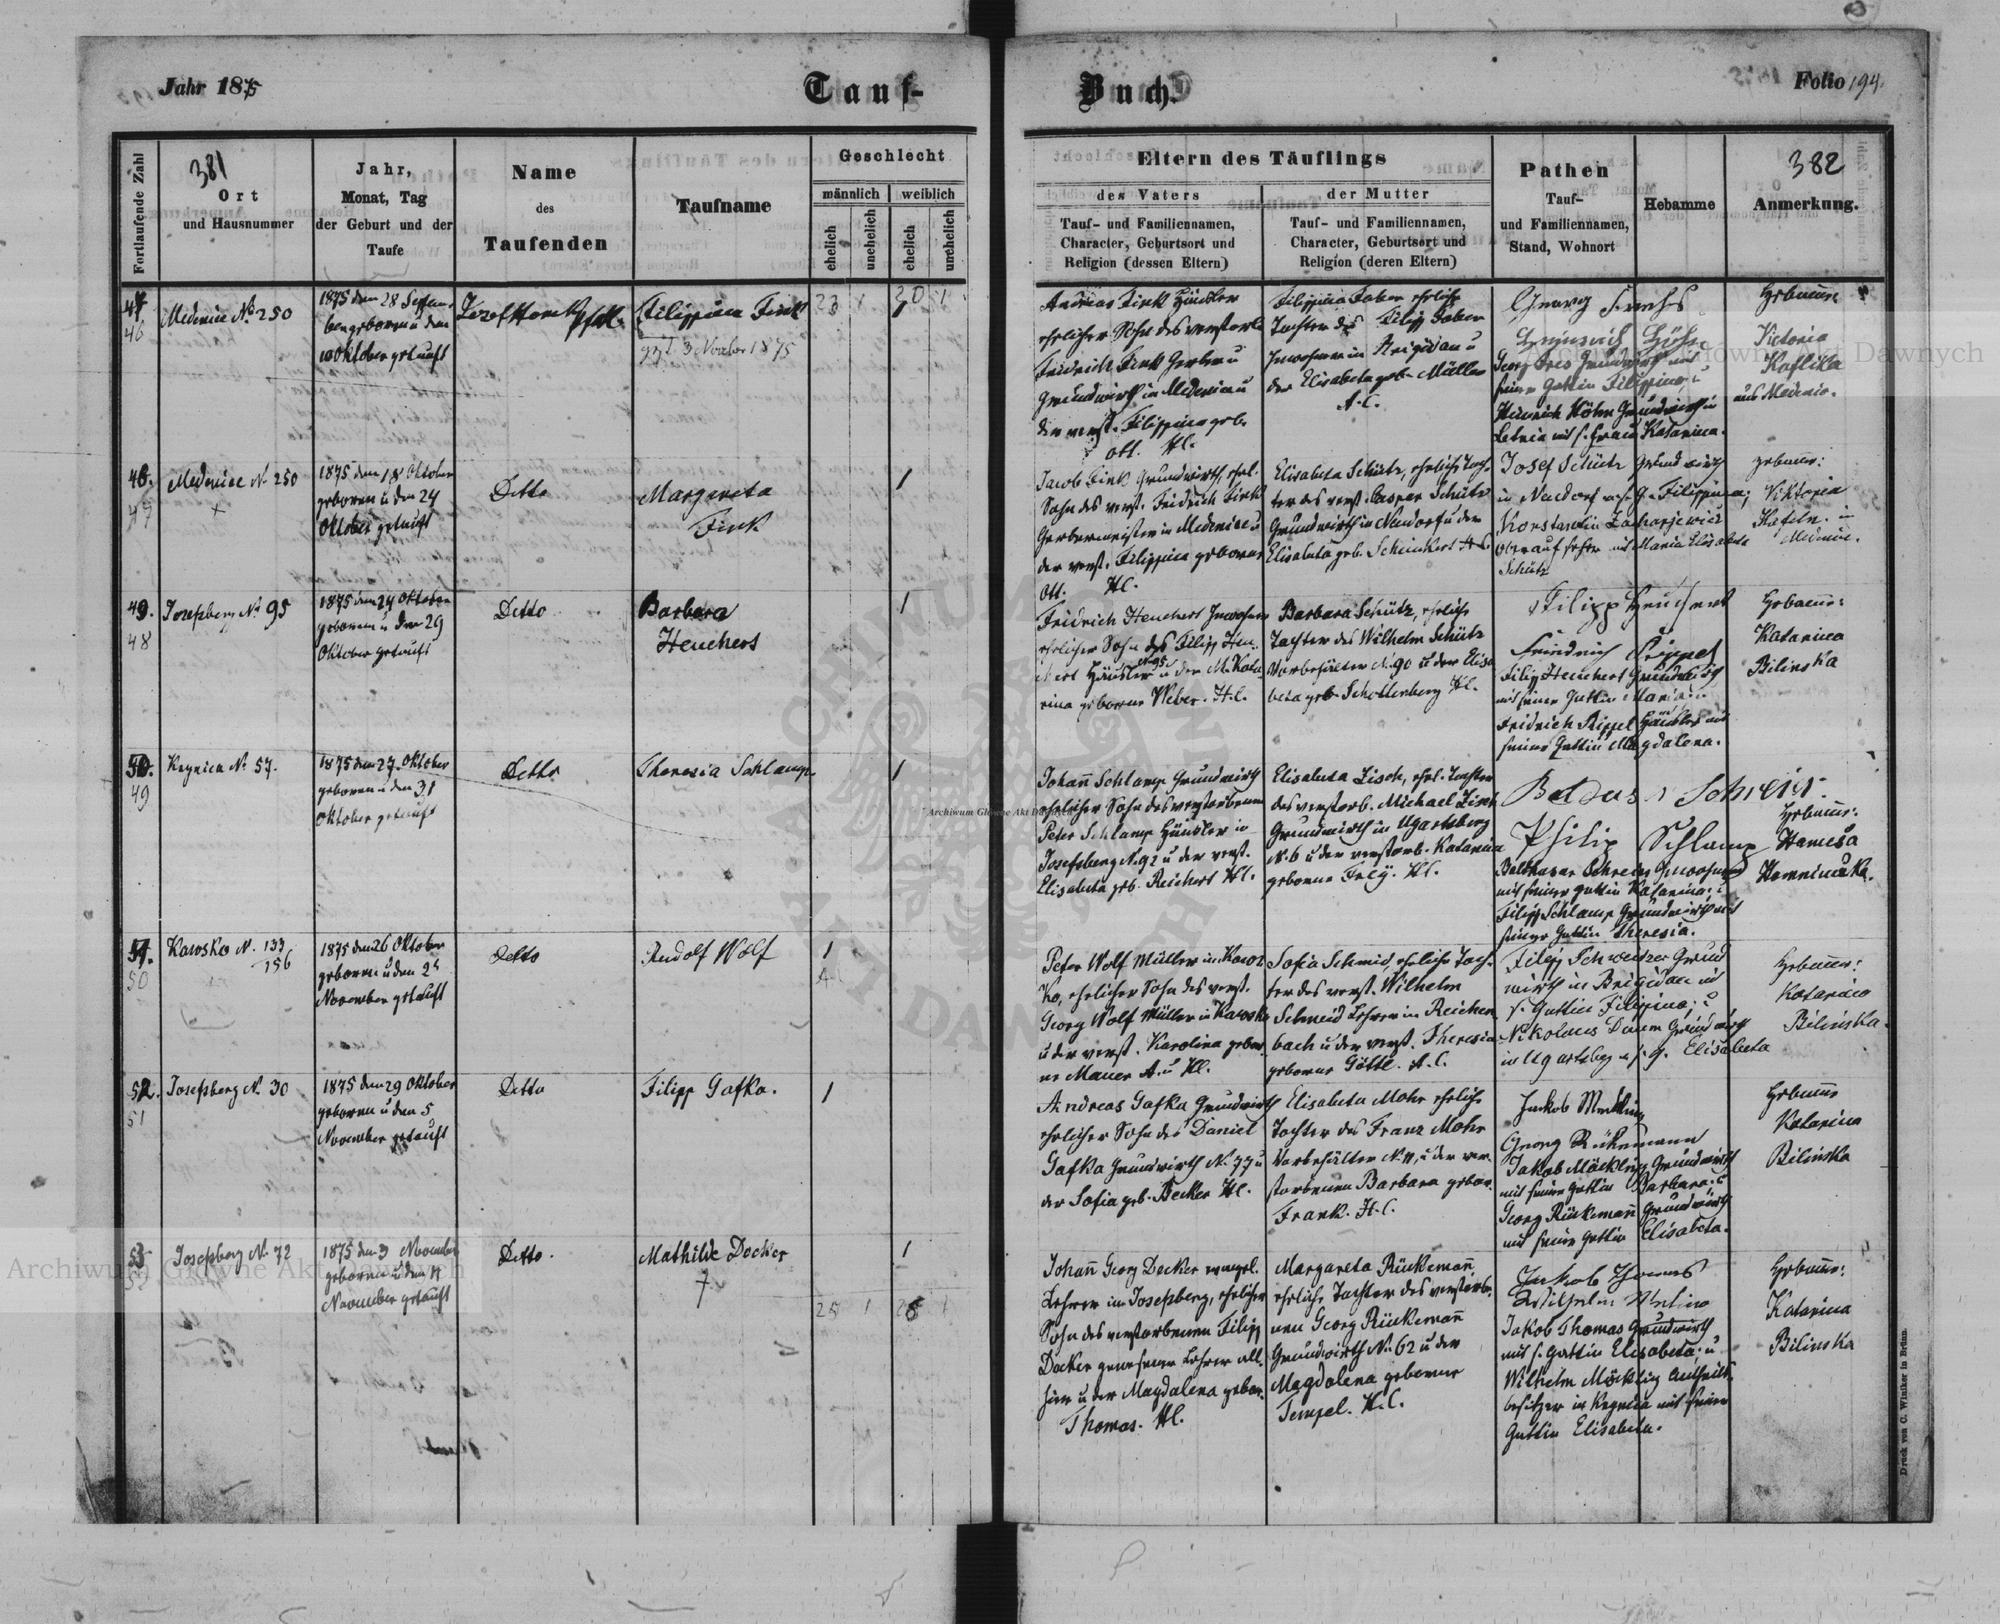 Jahr 1875
Tauf-
Buch.
Folio 194.
Fortlaufende Zahl
381
Ort
und Hausnummer
Jahr,
Monat, Tag
der Geburt und der
Taufe
Name
des
Taufenden
Taufname
Geschlecht
männlich
weiblich
ehelich
unehelich
ehelich
unehelich
Eltern des Täuflings
des Vaters
Tauf- und Familiennamen,
Character, Geburtsort und
Religion (dessen Eltern)
der Mutter
Tauf- und Familiennamen,
Character, Geburtsort und
Religion (deren Eltern)
Pathen
Tauf-
und Familiennamen,
Stand, Wohnort
Hebamme
382
Anmerkung.
47
46
Medenice No 250
1875 den 28 Septem
ber geboren u den
10 Oktober getauft
Filippina Fink
3 November 1875
23 1 20 1
Andreas Fink Häusler
ehelicher Sohn des verstorb.
Fridrich Fink Gerber u
Grundwirth in Medenice u
der verst. Filippina geb.
Ott. H.C.
Filippina Faber eheliche
Tochter des Filipp Faber
Inwohner in Brigidau u
der Elisabeta geb. Müller
A.C.
Georg
Heinrich Höhn
Georg Grundwirth und
seine Gattin Filippina u
Heinrich Höhn Grundwirth in
Letnia mit s. Frau Katarina.
Hebamme
Victoria
Kaflika
aus Medenice.
48.
47
Medenice No 250
1875 den 18 Oktober
geboren u den 24
Oktober getauft
Ditto
Margareta
Fink
1
Jacob Fink Grundwirth, ehel.
Sohn des verst. Fridrich Fink
Gerbermeister in Medenice u
der verst. Filippina geborne
Ott. H.C.
Elisabeta Schütz, eheliche Toch-
ter des verst. Caspar Schütz
Grundwirth in Neudorf u der
Elisabeta geb. Schinkert H.C.
Josef Schütz Grundwirth
in Neudorf u. s. G. Filippina;
Konstantin Zacharjewicz
Oberaufseher mit Maria Elisabeta
Schütz
Hebamme:
Viktoria
in
Medenice.
49.
48
Josefsberg No 95
1875 den 24 Oktober
geboren u den 29
Oktober getauft
Ditto
Barbara
Heuchert
1
Fridrich Heuchert Inwohner
ehelicher Sohn des Filipp Heu-
chert Häusler N. 95 u der M. Kata
rina geborne Weber. H.C.
Barbara Schütz, eheliche
Tochter des Wilhelm Schütz
Vorbehälter N. 90 u der Elisa
beta geb. Schottenberg H.C.
Filipp Heuchert
Friedrich Rippel
Filipp Heuchert Grundwirth
mit seiner Gattin Maria;
Fridrich Rippel Häusler mit
seiner Gattin Magdalena.
Hebamme:
Katarina
Bilinska
50.
49
Krynica No 57.
1875 den 27. Oktober
geboren u den 31
Oktober getauft
Ditto
Theresia Schlamp
1
Johann Schlamp Grundwirth
ehelicher Sohn des verstorbenen
Peter Schlamp Häusler in
Josefsberg N. 92 u der verst.
Elisabeta geb. Reichert H.C.
Elisabeta Zisch, ehel. Tochter
des verstorb. Michael Zisch
Grundwirth in Ugartsberg
N. 6 u der verstorb. Katarina
geborne Frey. H.C.
Philip Schlamp
Balthasar Schreier Inwohner
mit seiner Gattin Katarina:
Filipp Schlamp Grundwirth mit
seiner Gattin Theresia.
Hebamme:
51.
50
Kawsko N. 133/156
1875 den 26 Oktober
geboren u den 2t
November getauft
Ditto
Rudolf Wolf
1
Peter Wolf Müller in Kaws
ko, ehelicher Sohn des verst.
Georg Wolf Müller in Kawsko
u der verst. Karolina gebor
ne Mauer A. u H.C.
Sofia Schmid, eheliche Toch-
ter des verst. Wilhelm
Schmid Lehrer in Reichen
bach u der verst. Theresia
geborne Göttl. A.C.
Filipp Schweitzer Grund
wirth in Brigidau mit
s. Gattin Filippina;
Nikolaus Grundwirth
in Ugartsberg u. s. G. Elisabeta
Hebamme:
Katarina
Bilinska.
52.
51
Josefsberg N. 30
1875 den 29 Oktober
geboren u den 5
November getauft
Ditto
Filipp Gafka.
1
Andreas Gafka Grundwirth
ehelicher Sohn des Daniel
Gafka Grundwirth N. 77 u
der Sofia geb. Becker H.C.
Elisabeta Mohr eheliche
Tochter des Franz Mohr
Vorbehälter N. 11, u der ver
storbenen Barbara gebor.
Frank. H.C.
Jakob
Georg Rükemann
Jakob Möckling Grundwirth
mit seiner Gattin Barbara:
Georg Rükemann Grundwirth
mit seiner Gattin Elisabeta.
Hebamme
Katarina
Bilinska
53
52
Josefsberg No 72
1875 den 3 November
geboren u den 11
November getauft
Ditto.
Mathilde Decker
1
25 1 28 1
Johann Georg Decker evangel.
Lehrer in Josefsberg, ehelicher
Sohn des verstorbenen Filipp
Decker gewesener Lehrer all-
hier u der Magdalena gebor.
Thomas. H.C.
Margareta Rükemann
eheliche Tochter des verstorbe-
nen Georg Rükemann
Grundwirth No 62 u der
Magdalena geborne
Tempel. H.C.
Jakob Thomas
Wilhelm
Jakob Thomas Grundwirth
mit s. Gattin Elisabeta; u
Wilhelm Möckling Antheils-
besitzer in Krynica mit seiner
Gattin Elisabeta.
Hebamme:
Katarina
Bilinska
Druck von C. Winiker in Brünn.
Archiwum Główne Akt Dawnych
Archiwum Główne Akt Dawnych
Archiwum Główne Akt Dawnych